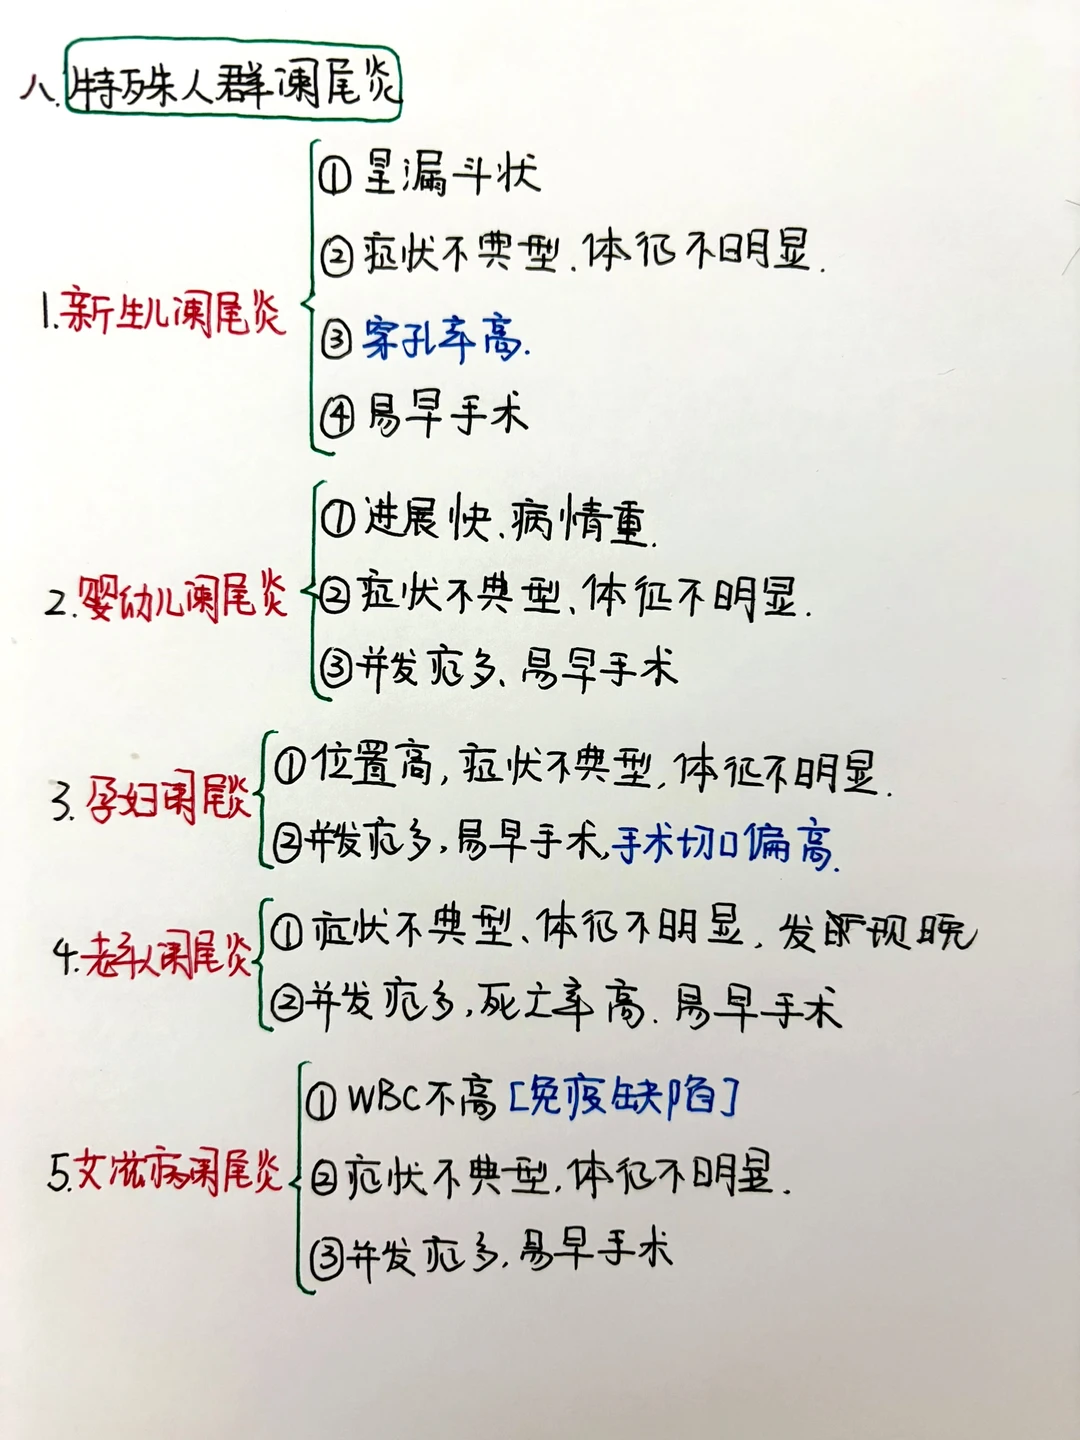 八.特殊人群阑尾炎
1.新生儿阑尾炎
①呈漏斗状
②症状不典型.体征不明显.
③穿孔率高.
④易早手术
2.婴幼儿阑尾炎
①进展快、病情重.
②症状不典型、体征不明显.
③并发症多、易早手术
3.孕妇阑尾炎
①位置高,症状不典型,体征不明显.
②并发症多,易早手术,手术切口偏高.
4.老年人阑尾炎
①症状不典型、体征不明显,发现晚
②并发症多,死亡率高.易早手术
5.艾滋病阑尾炎
①WBC不高[免疫缺陷]
②症状不典型,体征不明显.
③并发症多,易早手术